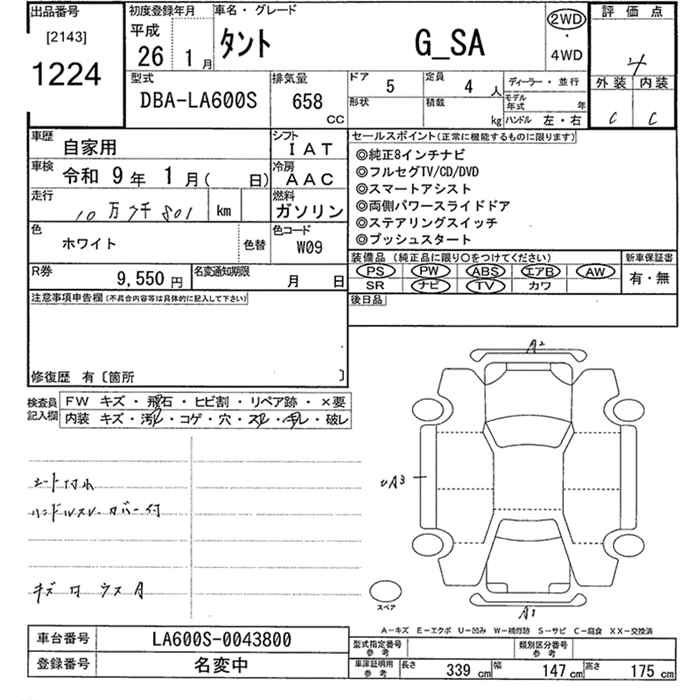 出品番号
[2143]
1224
初度登録年月
平成
26年 1月
車名・グレード
タント G_SA
2WD
・
4WD
評価点
4
外装 内装
C C
型式
DBA-LA600S
排気量
658
CC
ドア 5
定員 4人
形状
積載 kg
ディーラー・並行
モデル年式 年
ハンドル 左・右
車歴 自家用
シフト IAT
車検 令和 9年 1月( 日)
冷房 AAC
走行 10万 7千 801 km
燃料 ガソリン
色 ホワイト
色替
色コード W09
R券 9,550円
名変通知期限 月 日
セールスポイント(正常に機能するものに限ります)
◎純正8インチナビ
◎フルセグTV/CD/DVD
◎スマートアシスト
◎両側パワースライドドア
◎ステアリングスイッチ
◎プッシュスタート
装備品 (純正品に限り〇をつけてください)
新車保証書
PS PW ABS エアB AW
SR ナビ TV カワ
有・無
後日品
注意事項申告欄(不具合内容等は具体的に記入して下さい)
修復歴 有〔箇所 〕
検査員記入欄
FW キズ・飛石・ヒビ割・リペア跡・×要
内装 キズ・汚レ・コゲ・穴・スレ・キレ・破レ
シート汚れ
ハンドルスレ・カバー付
A2
A3
A1
スペア
A-キズ E-エクボ U-凹み W-補修跡 S-サビ C-腐食 XX-交換済
車台番号 LA600S-0043800
登録番号 名変中
型式指定番号 参考
類別区分番号 参考
車庫証明用 参考
長さ 339cm 幅 147cm 高さ 175cm